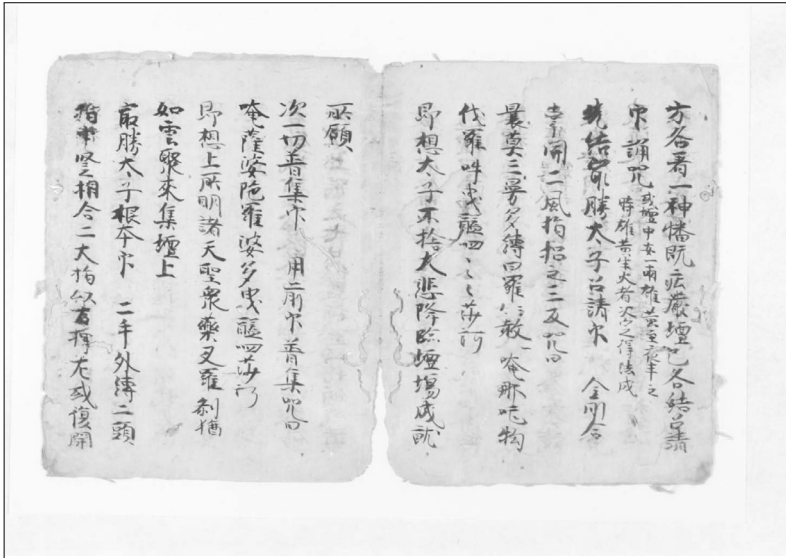 方各著一神幡既莊嚴壇已各結召請
印誦咒
或壇中安一兩雄黃至夜半之
時雄黃生火者次之得法成
先結最勝太子召請印 金剛合
掌開二風指招之三反咒曰
曩莫三曼多縛曰羅 唵那吒
伐羅吽曳醯四 莎訶
即想太子不捨大悲降臨壇場成就
所願
次一切普集印 用前印普集咒曰
唵薩婆陀羅婆多曳醯四莎訶
即想上所明諸天聖衆藥叉羅刹猶
如雲聚來集壇上
最勝太子根本印 二手外縛二頭
指中竪相合二大指 右押左或復開